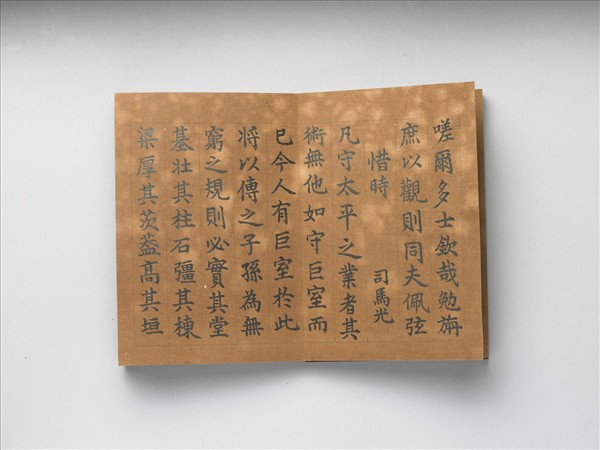 嗟爾多士欽哉勉旃
庶以觀則同夫佩弦
惜時 司馬光
凡守太平之業者其
術無他如守巨室而
已今人有巨室於此
将以傳之子孫為無
窮之規則必實其堂
基壮其柱石彊其棟
梁厚其茨葢髙其垣